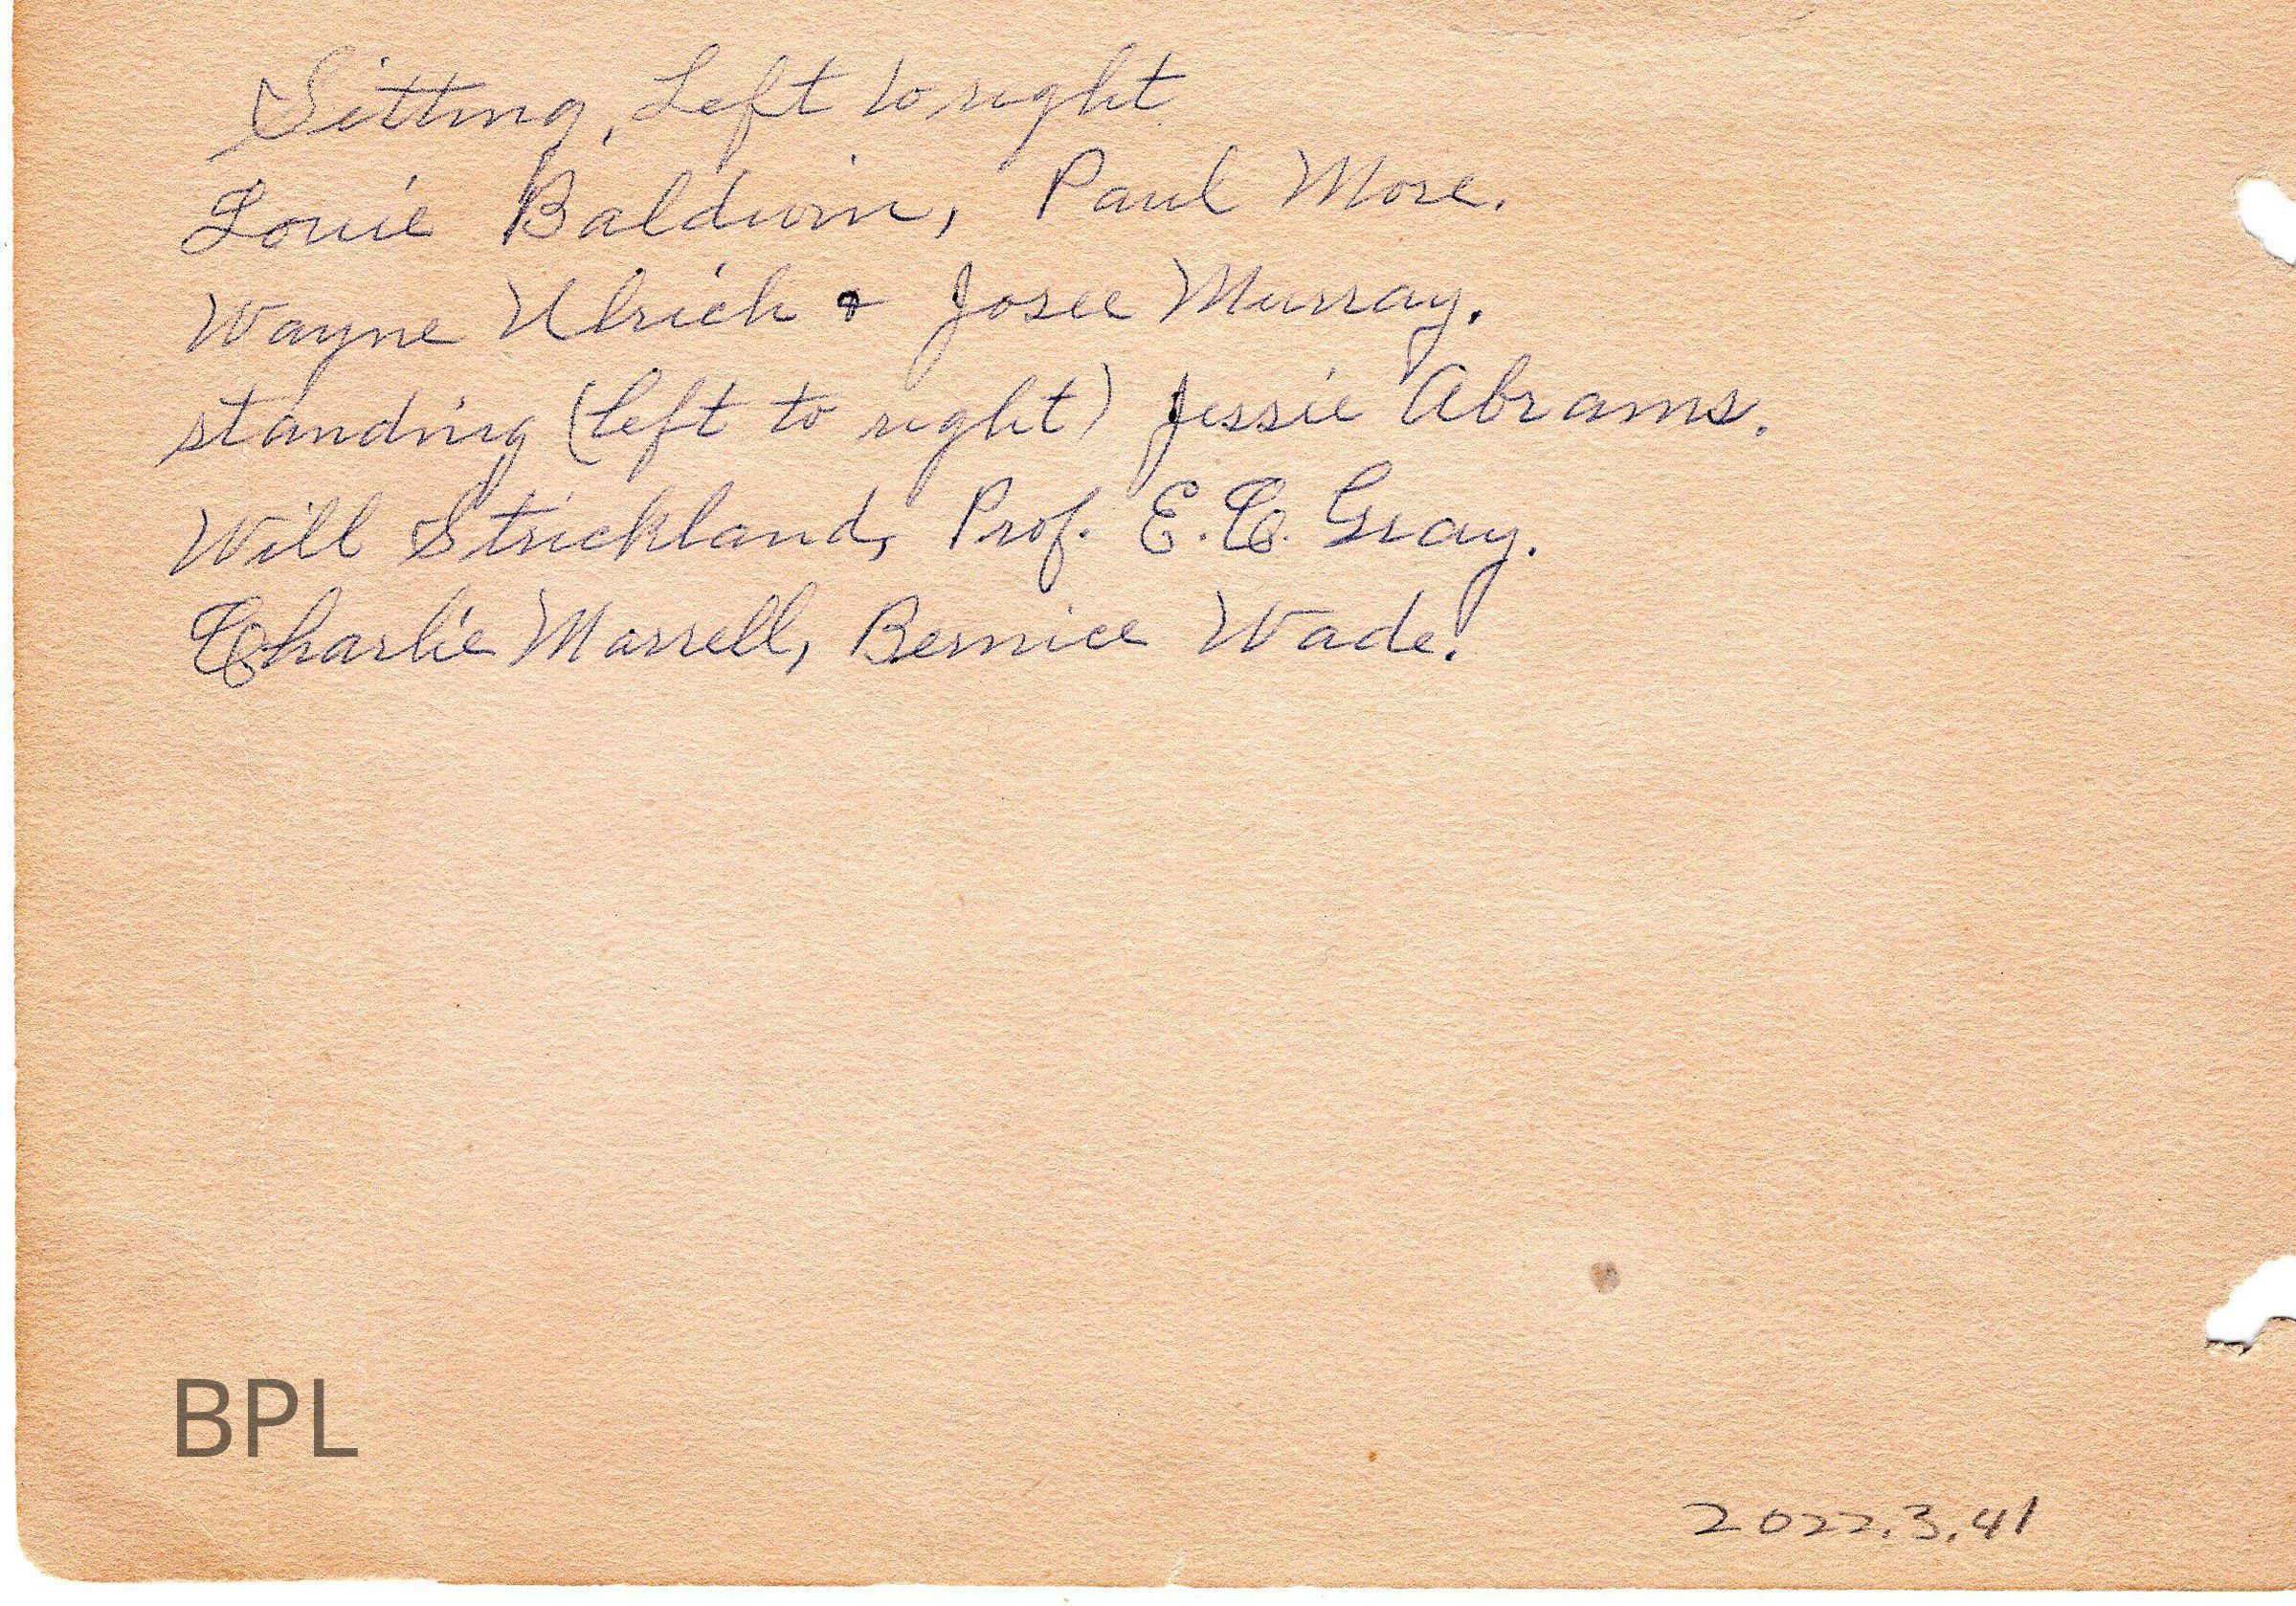 Sitting, Left to right.
Louie Baldwin, Paul More.
Wayne Ulrich & Josee Murray.
standing (left to right) Jessie Abrams.
Will Strickland, Prof. E.C. Gray.
Charlie Marrell, Bernice Wade.
BPL
2022.3.41